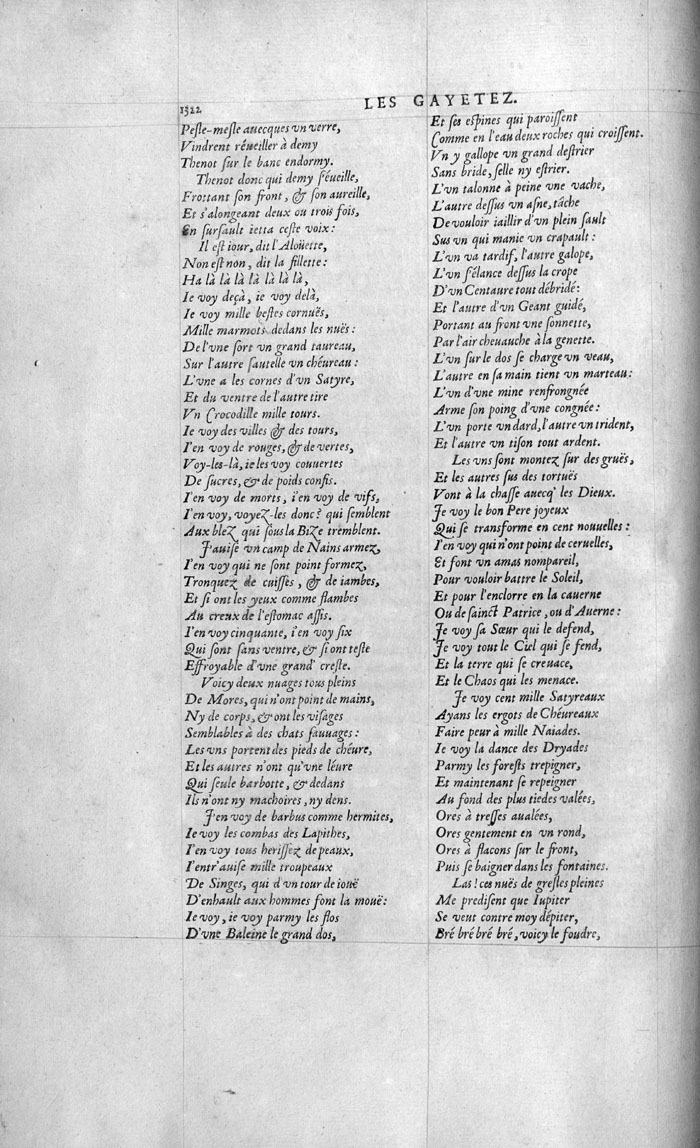 1522
LES GAYETEZ.
Pesle-mesle auecques vn verre,
Vindrent réueiller à demy
Thenot ſur le banc endormy.
Thenot donc qui demy ſ'éueille,
Frottant ſon front, & ſon aureille,
Et s'alongeant deux ou trois fois,
En ſurſault ietta ceſte voix:
Il eſt iour, dit l'Aloüette,
Non eſt non, dit la fillette:
Ha là là là là là là là,
Ie voy deçà, ie voy delà,
Ie voy mille beſtes cornuës,
Mille marmots dedans les nuës:
De l'vne ſort vn grand taureau,
Sur l'autre ſautelle vn chéureau:
L'vne a les cornes d'vn Satyre,
Et du ventre de l'autre tire
Vn Crocodille mille tours.
Ie voy des villes & des tours,
I'en voy de rouges, & de vertes,
Voy-les-là, ie les voy couuertes
De ſucres, & de poids confis.
I'en voy de morts, i'en voy de vifs,
I'en voy, voyez-les donc? qui ſemblent
Aux blez qui ſous la Bize tremblent.
J'auiſe vn camp de Nains armez,
I'en voy qui ne ſont point formez,
Tronquez de cuiſſes, & de iambes,
Et ſi ont les yeux comme flambes
Au creux de l'eſtomac aſſis.
I'en voy cinquante, i'en voy ſix
Qui ſont ſans ventre, & ſi ont teſte
Effroyable d'vne grand' creſte.
Voicy deux nuages tous pleins
De Mores, qui n'ont point de mains,
Ny de corps, & ont les viſages
Semblables à des chats ſauuages:
Les vns portent des pieds de chéure,
Et les autres n'ont qu'vne léure
Qui ſeule barbotte, & dedans
Ils n'ont ny machoires, ny dens.
J'en voy de barbus comme hermites,
Ie voy les combas des Lapithes,
I'en voy tous heriſſez de peaux,
I'entr'auiſe mille troupeaux
De Singes, qui d'vn tour de iouë
D'enhault aux hommes font la mouë:
Ie voy, ie voy parmy les flos
D'vne Baleine le grand dos,
Et ſes eſpines qui paroiſſent
Comme en l'eau deux roches qui croiſſent.
Vn y gallope vn grand deſtrier
Sans bride, ſelle ny eſtrier.
L'vn talonne à peine vne vache,
L'autre deſſus vn aſne, tâche
De vouloir iaillir d'vn plein ſault
Sus vn qui manie vn crapault:
L'vn va tardif, l'autre galope,
L'vn ſ'élance deſſus la crope
D'vn Centaure tout débridé:
Et l'autre d'vn Geant guidé,
Portant au front vne ſonnette,
Par l'air cheuauche à la genette.
L'vn ſur le dos ſe charge vn veau,
L'autre en ſa main tient vn marteau:
L'vn d'vne mine renfrongnée
Arme ſon poing d'vne congnée:
L'vn porte vn dard, l'autre vn trident,
Et l'autre vn tiſon tout ardent.
Les vns ſont montez ſur des gruës,
Et les autres ſus des tortuës
Vont à la chaſſe auecq' les Dieux.
Je voy le bon Pere joyeux
Qui ſe transforme en cent nouuelles:
I'en voy qui n'ont point de ceruelles,
Et font vn amas nompareil,
Pour vouloir battre le Soleil,
Et pour l'enclorre en la cauerne
Ou de ſainct Patrice, ou d'Auerne:
Je voy ſa Sœur qui le defend,
Je voy tout le Ciel qui ſe fend,
Et la terre qui ſe creuace,
Et le Chaos qui les menace.
Je voy cent mille Satyreaux
Ayans les ergots de Chéureaux
Faire peur à mille Naiades.
Ie voy la dance des Dryades
Parmy les foreſts trepigner,
Et maintenant ſe repeigner
Au fond des plus tiedes valées,
Ores à treſſes aualées,
Ores gentement en vn rond,
Ores à flacons ſur le front,
Puis ſe baigner dans les fontaines.
Las! ces nuës de greſles pleines
Me prediſent que Iupiter
Se veut contre moy dépiter,
Bré bré bré bré, voicy le foudre,